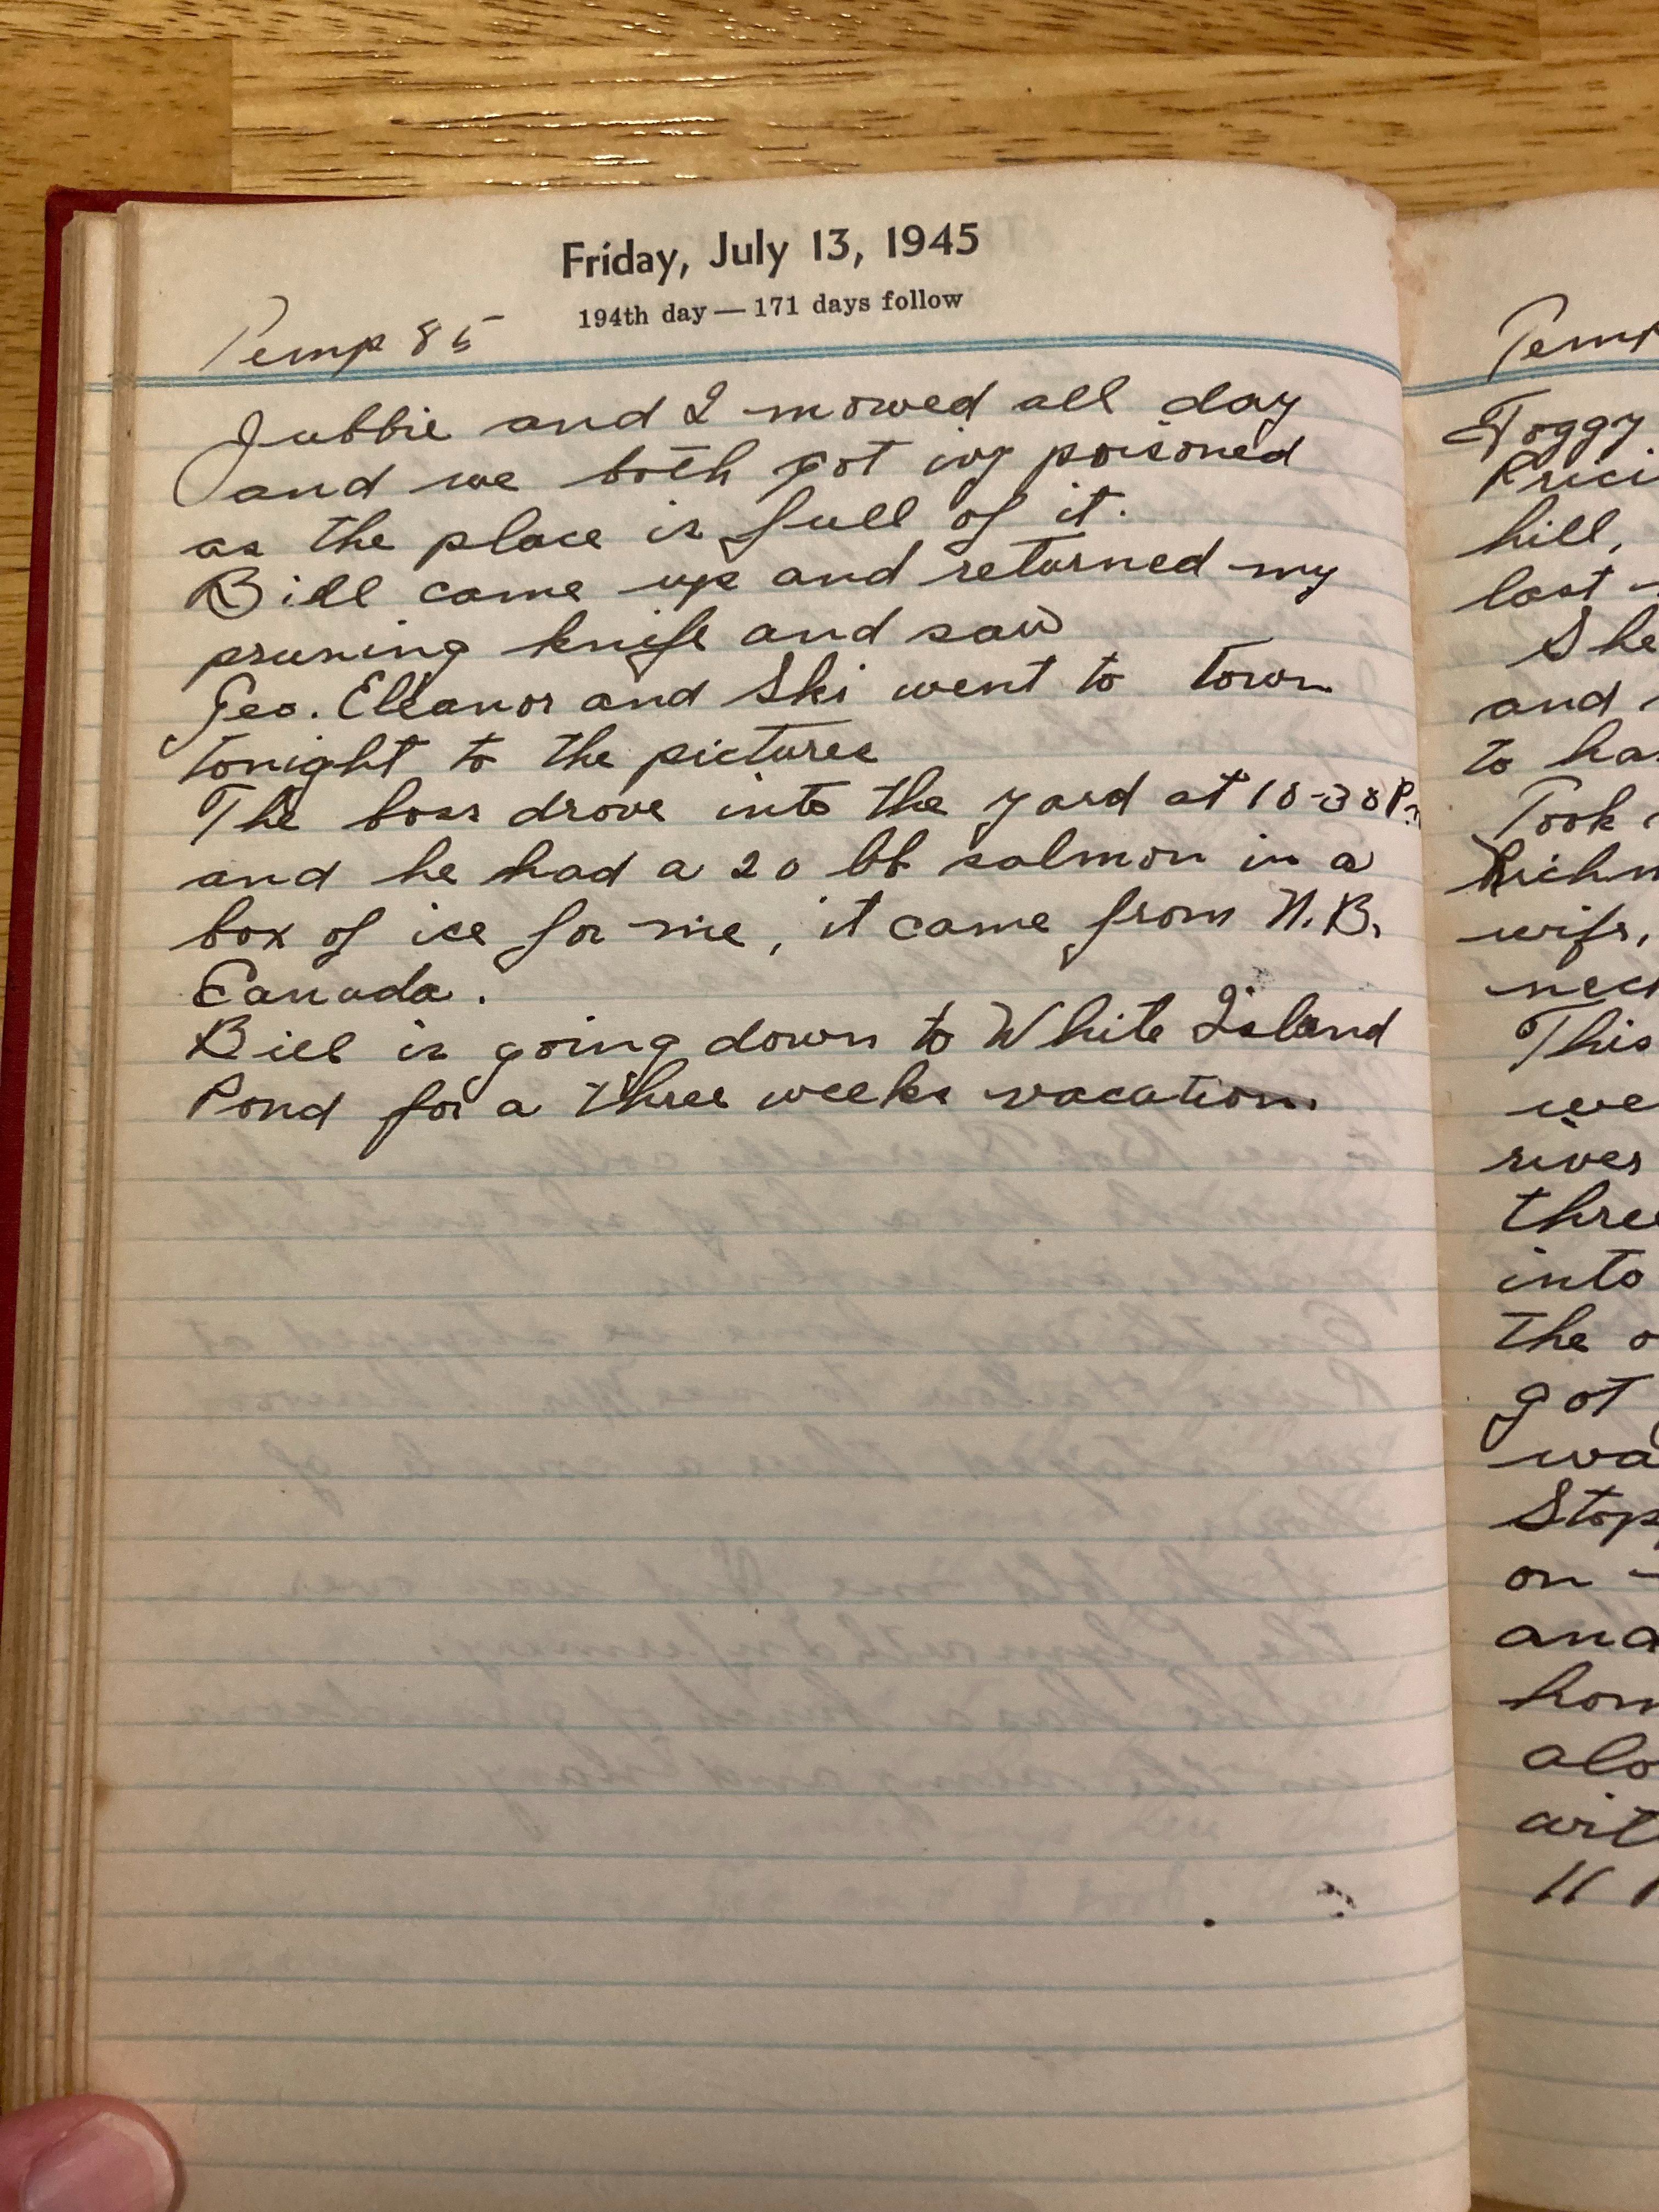 Friday, July 13, 1945
194th day — 171 days follow
Temp 85
Jubbie and I mowed all day
and we both got ivy poisoned
as the place is full of it.
Bill came up and returned my
pruning knife and saw
Geo. Eleanor and Ski went to town
tonight to the pictures
The boss drove into the yard at 10-30 P.
and he had a 20 lb salmon in a
box of ice for me, it came from N.B.
Canada.
Bill is going down to White Island
Pond for a three weeks vacation.
Temp
Foggy
hill,
last
She
and
to ha
Took
Richm
wife,
This
we
river
three
into
the o
got
wa
Stop
on
and
hom
alo
wit
11